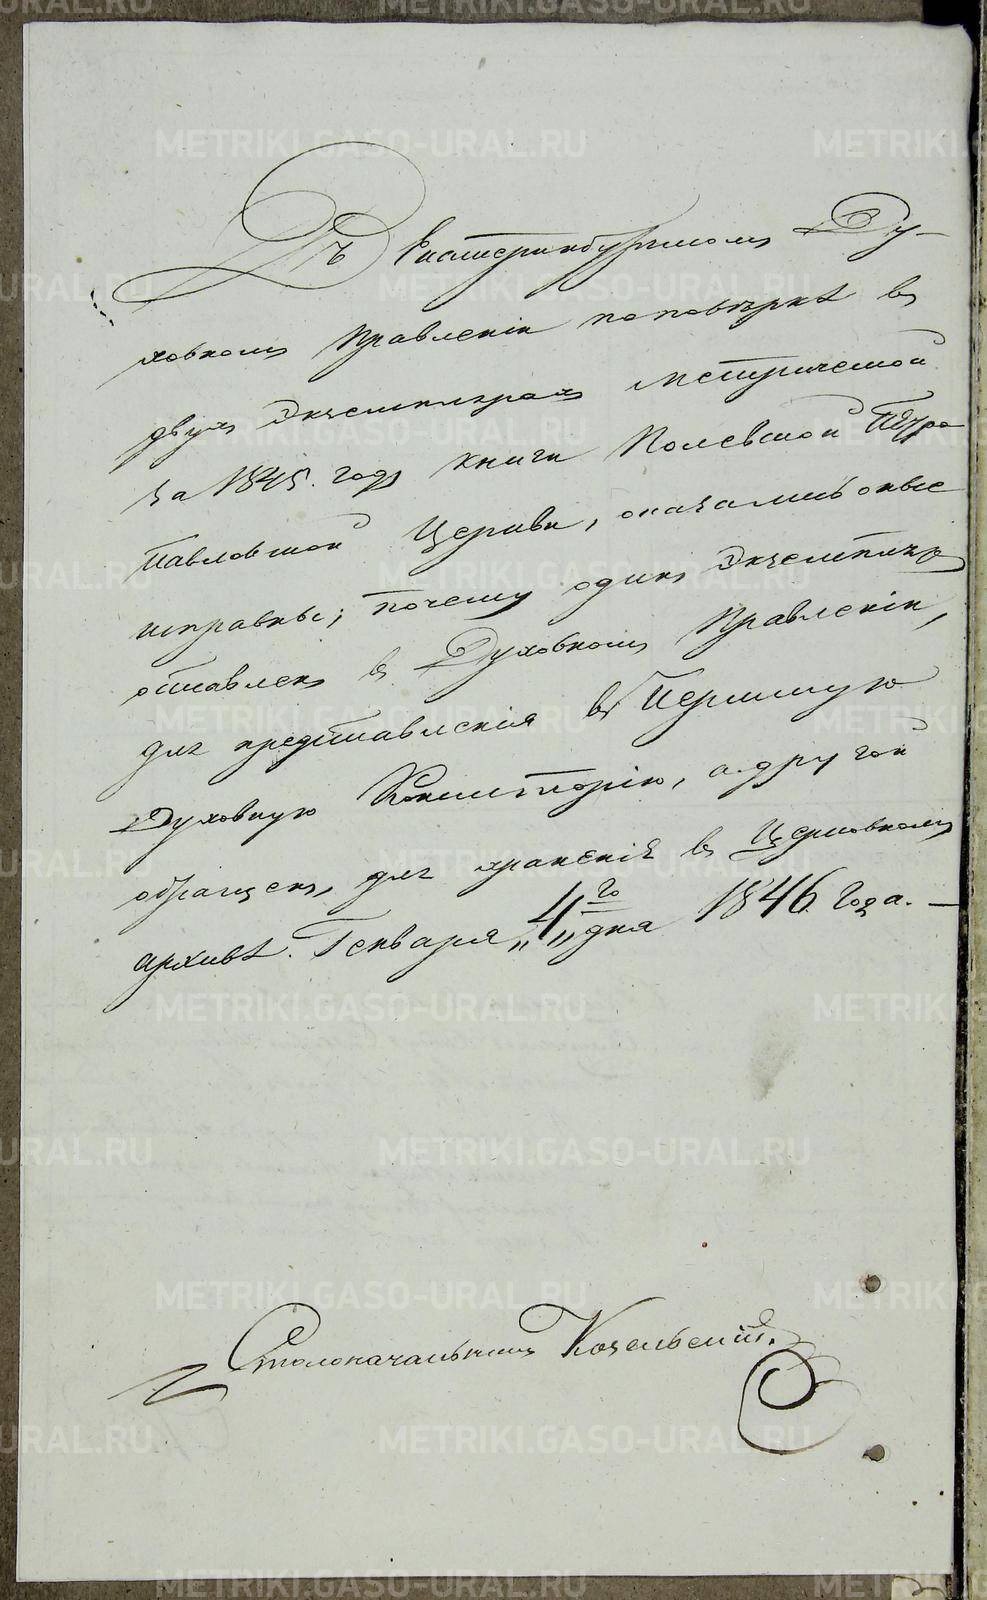 Въ Екатеринбургскомъ Ду-
ховномъ Правленіи по повѣркѣ въ
двухъ Экземплярахъ метрической
за 1845. годъ книги Полевской Петро
Павловской Церкви, оказались оные
исправны; почему одинъ Экземпляръ
оставленъ въ Духовномъ Правленіи,
для представленія въ Пермскую
Духовную Консисторію, а другой
обращенъ для храненія въ Церковномъ
архивѣ. Генваря „4го„ дня 1846 Года. —
Столоначальникъ Козельскій.
METRIKI.GASO-URAL.RU